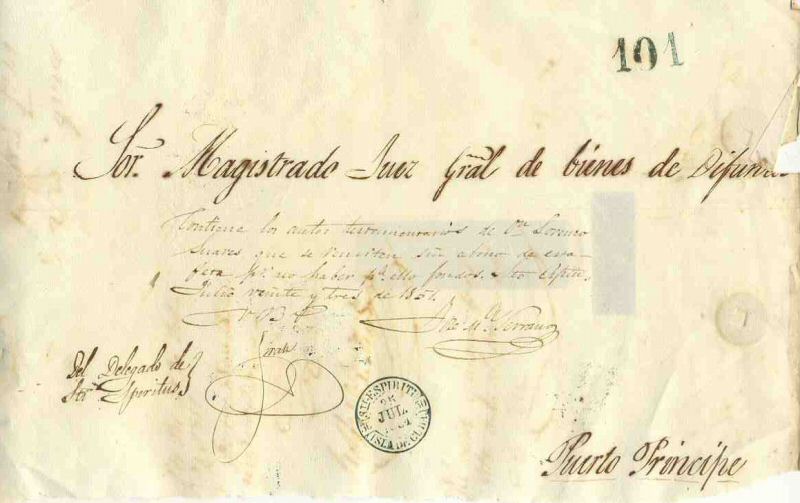 101
Sor. Magistrado Juez Gral de bienes de Difun
Contiene los autos testamentarios de Dn Lorenzo
Suares que se remiten sin abono de esta-
feta pr. no haber pa. ello fondos. Sto Espiu.
Julio veinte y tres de 1851.
Vo Bo
José Ma. Serrano
Del Delegado de
Sto. Espiritus
S. ESPIRITU
25
JUL
ISLA DE CUBA
Puerto Principe